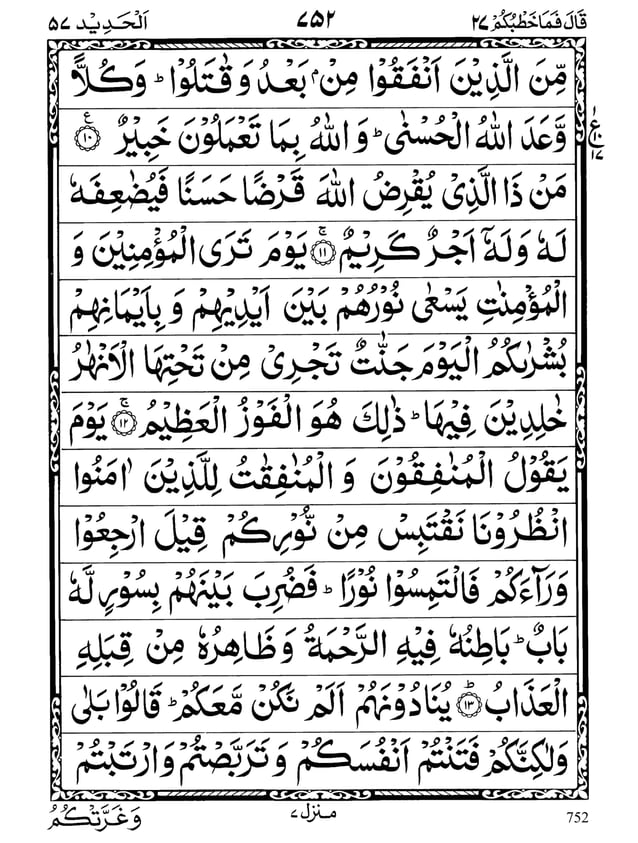 قَالَ فَمَا خَطْبُكُمْ ٢٧
٧٥٢
اَلْحَدِيْد ٥٧
مِّنَ الَّذِيْنَ اَنْفَقُوْا مِنْۢ بَعْدُ وَقٰتَلُوْا ؕ وَكُلًّا
وَّعَدَ اللّٰهُ الْحُسْنٰى ؕ وَاللّٰهُ بِمَا تَعْمَلُوْنَ خَبِيْرٌ ﴿۱۰﴾ ع
١
ع ١٠
١٧
مَنْ ذَا الَّذِىْ يُقْرِضُ اللّٰهَ قَرْضًا حَسَنًا فَيُضٰعِفَهٗ
لَهٗ وَلَهٗۤ اَجْرٌ كَرِيْمٌ ﴿۱۱﴾ ۚ يَوْمَ تَرَى الْمُؤْمِنِيْنَ وَ
الْمُؤْمِنٰتِ يَسْعٰى نُوْرُهُمْ بَيْنَ اَيْدِيْهِمْ وَبِاَيْمَانِهِمْ
بُشْرٰىكُمُ الْيَوْمَ جَنّٰتٌ تَجْرِىْ مِنْ تَحْتِهَا الْاَنْهٰرُ
خٰلِدِيْنَ فِيْهَا ؕ ذٰلِكَ هُوَ الْفَوْزُ الْعَظِيْمُ ﴿۱۲﴾ ۚ يَوْمَ
يَقُوْلُ الْمُنٰفِقُوْنَ وَالْمُنٰفِقٰتُ لِلَّذِيْنَ اٰمَنُوا
انْظُرُوْنَا نَقْتَبِسْ مِنْ نُّوْرِكُمْ قِيْلَ ارْجِعُوْا
وَرَآءَكُمْ فَالْتَمِسُوْا نُوْرًا ؕ فَضُرِبَ بَيْنَهُمْ بِسُوْرٍ لَّهٗ
بَابٌ ؕ بَاطِنُهٗ فِيْهِ الرَّحْمَةُ وَظَاهِرُهٗ مِنْ قِبَلِهِ
الْعَذَابُ ﴿۱۳﴾ ؕ يُنَادُوْنَهُمْ اَلَمْ نَكُنْ مَّعَكُمْ ؕ قَالُوْا بَلٰى
وَلٰكِنَّكُمْ فَتَنْتُمْ اَنْفُسَكُمْ وَتَرَبَّصْتُمْ وَارْتَبْتُمْ
752
منزل ٧
وَغَرَّتْكُمُ